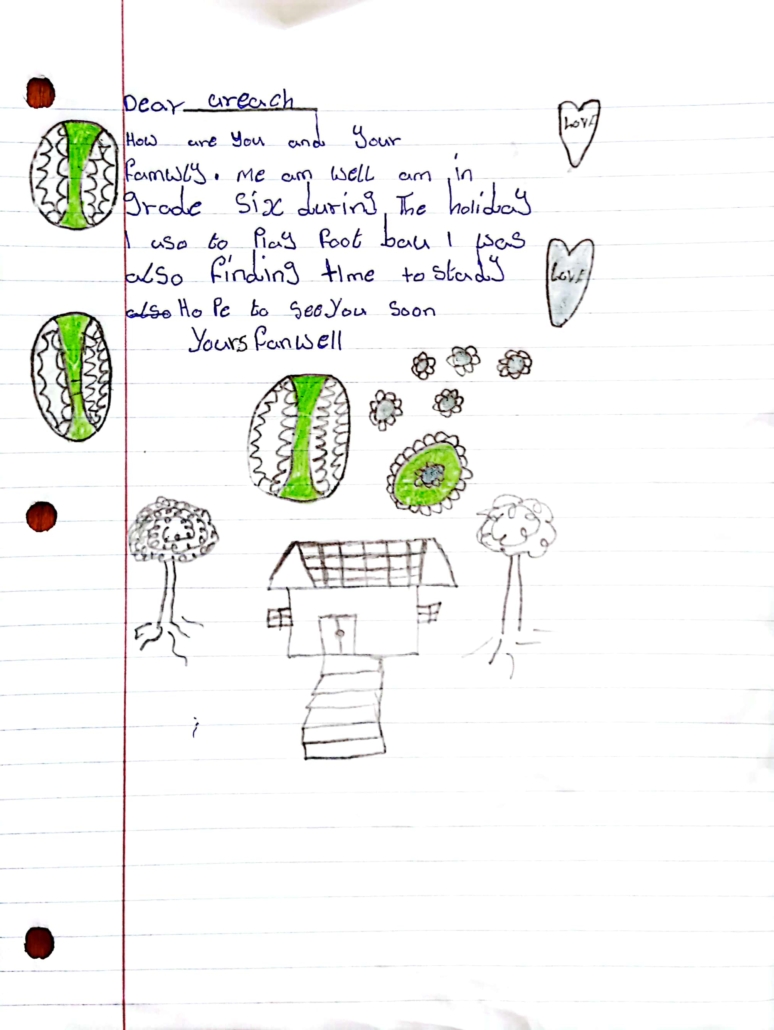 Dear areach
How are you and your
famwly. me am well am in
grade six during The holiday
I use to Play foot bau I was
also finding time to stady
also Ho Pe to see You soon
Yours fanwell
Love
Love